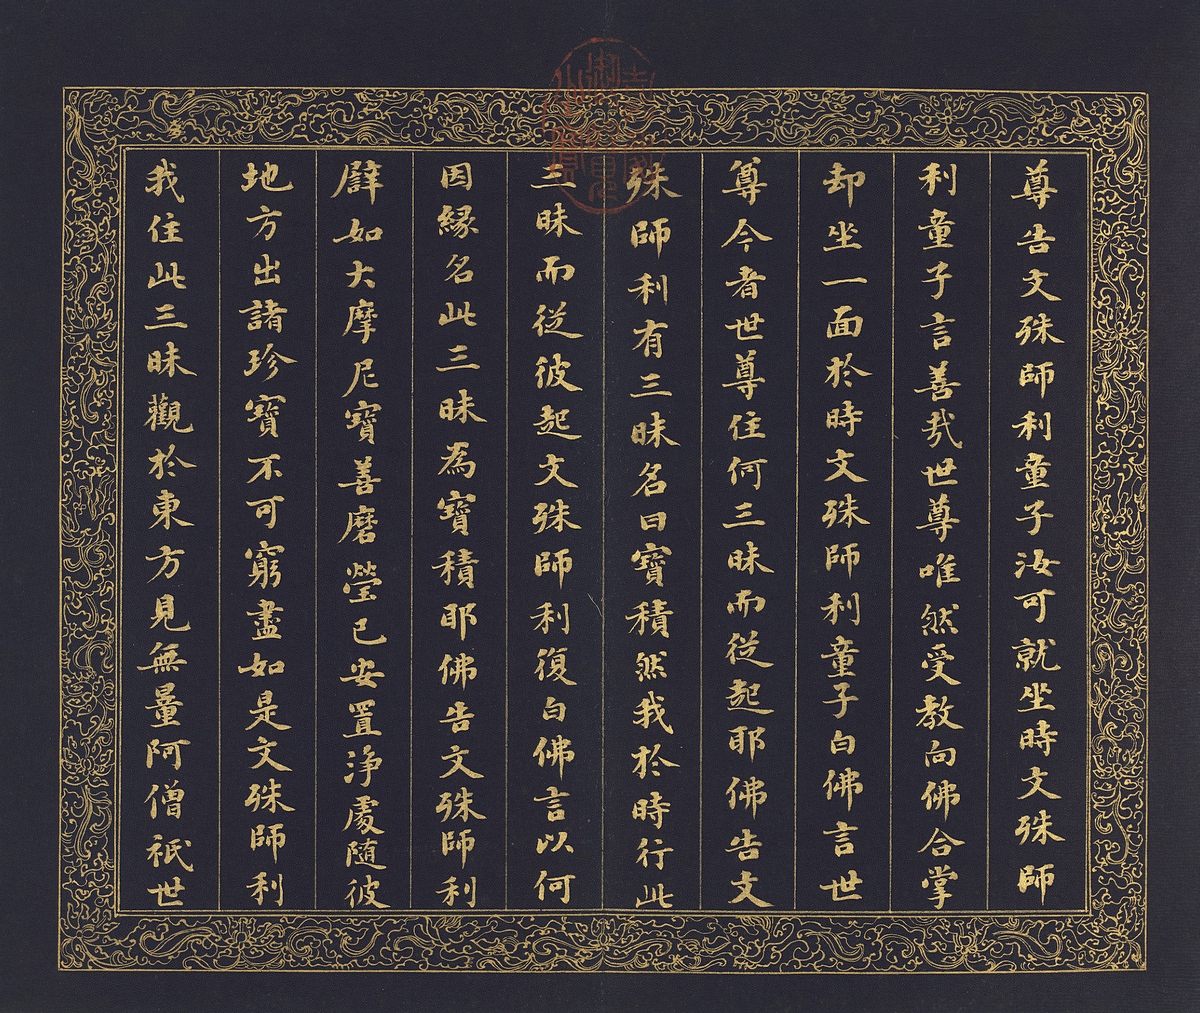 尊告文殊師利童子汝可就坐時文殊師
利童子言善哉世尊唯然受教向佛合掌
却坐一面於時文殊師利童子白佛言世
尊今者世尊住何三昧而從起耶佛告文
殊師利有三昧名曰寶積然我於時行此
三昧而從彼起文殊師利復白佛言以何
因緣名此三昧為寶積耶佛告文殊師利
譬如大摩尼寶善磨瑩已安置淨處隨彼
地方出諸珍寶不可窮盡如是文殊師利
我住此三昧觀於東方見無量阿僧祇世